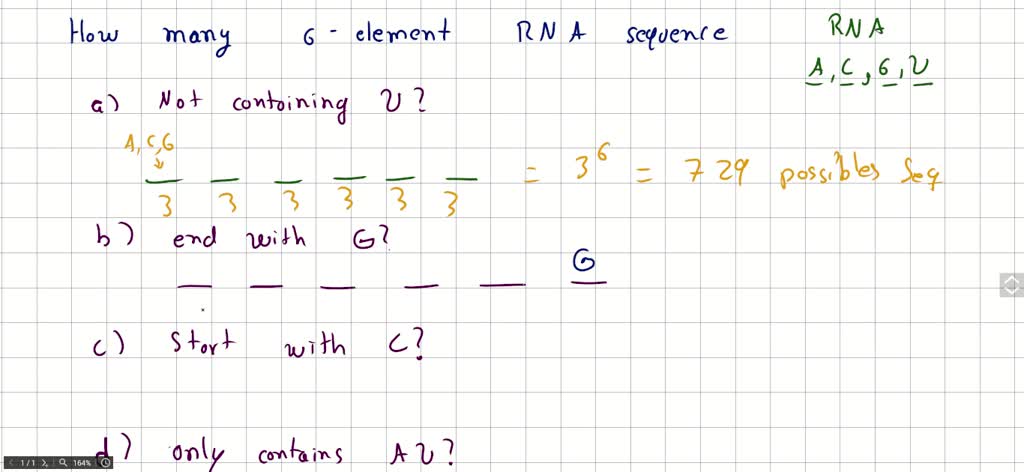 How many 6-element RNA sequence
RNA
A, C, G, U
a) Not containing U?
A, C, G
= 3^6 = 729 possibles Seq
3 3 3 3 3 3
b) end with G?
G
c) Start with C?
d) only contains A U?
1 / 1
164%